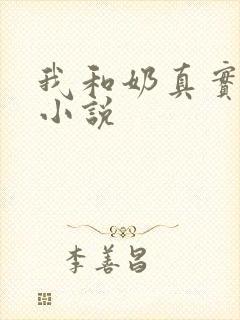 我和奶真實
小說
李善昌